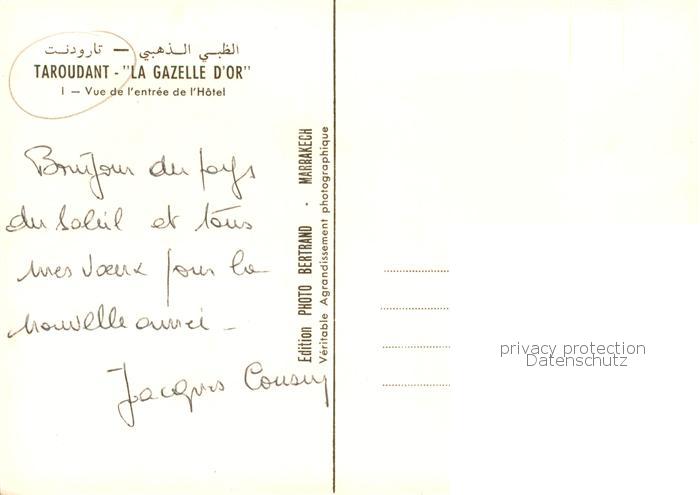 الظبي الذهبي — تارودنت
TAROUDANT - "LA GAZELLE D'OR"
I — Vue de l'entrée de l'Hôtel
Bonjour du pays
du Soleil et tous
mes vœux pour la
nouvelle année -
Jacques
Edition PHOTO BERTRAND · MARRAKECH
Véritable Agrandissement photographique
privacy protection
Datenschutz